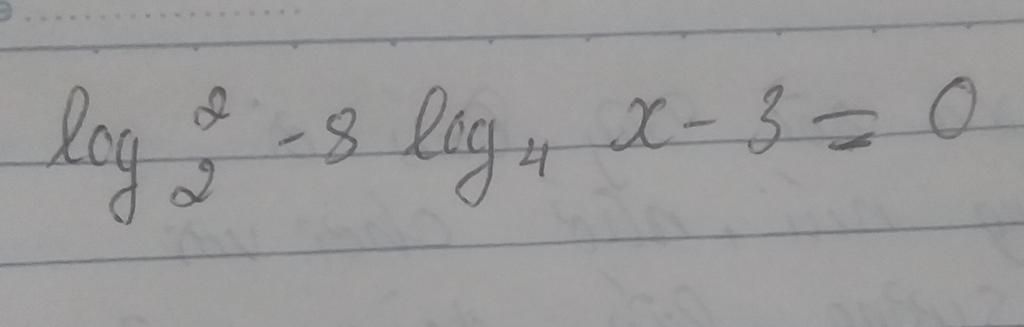 log₂² - 8 log₄ x - 3 = 0